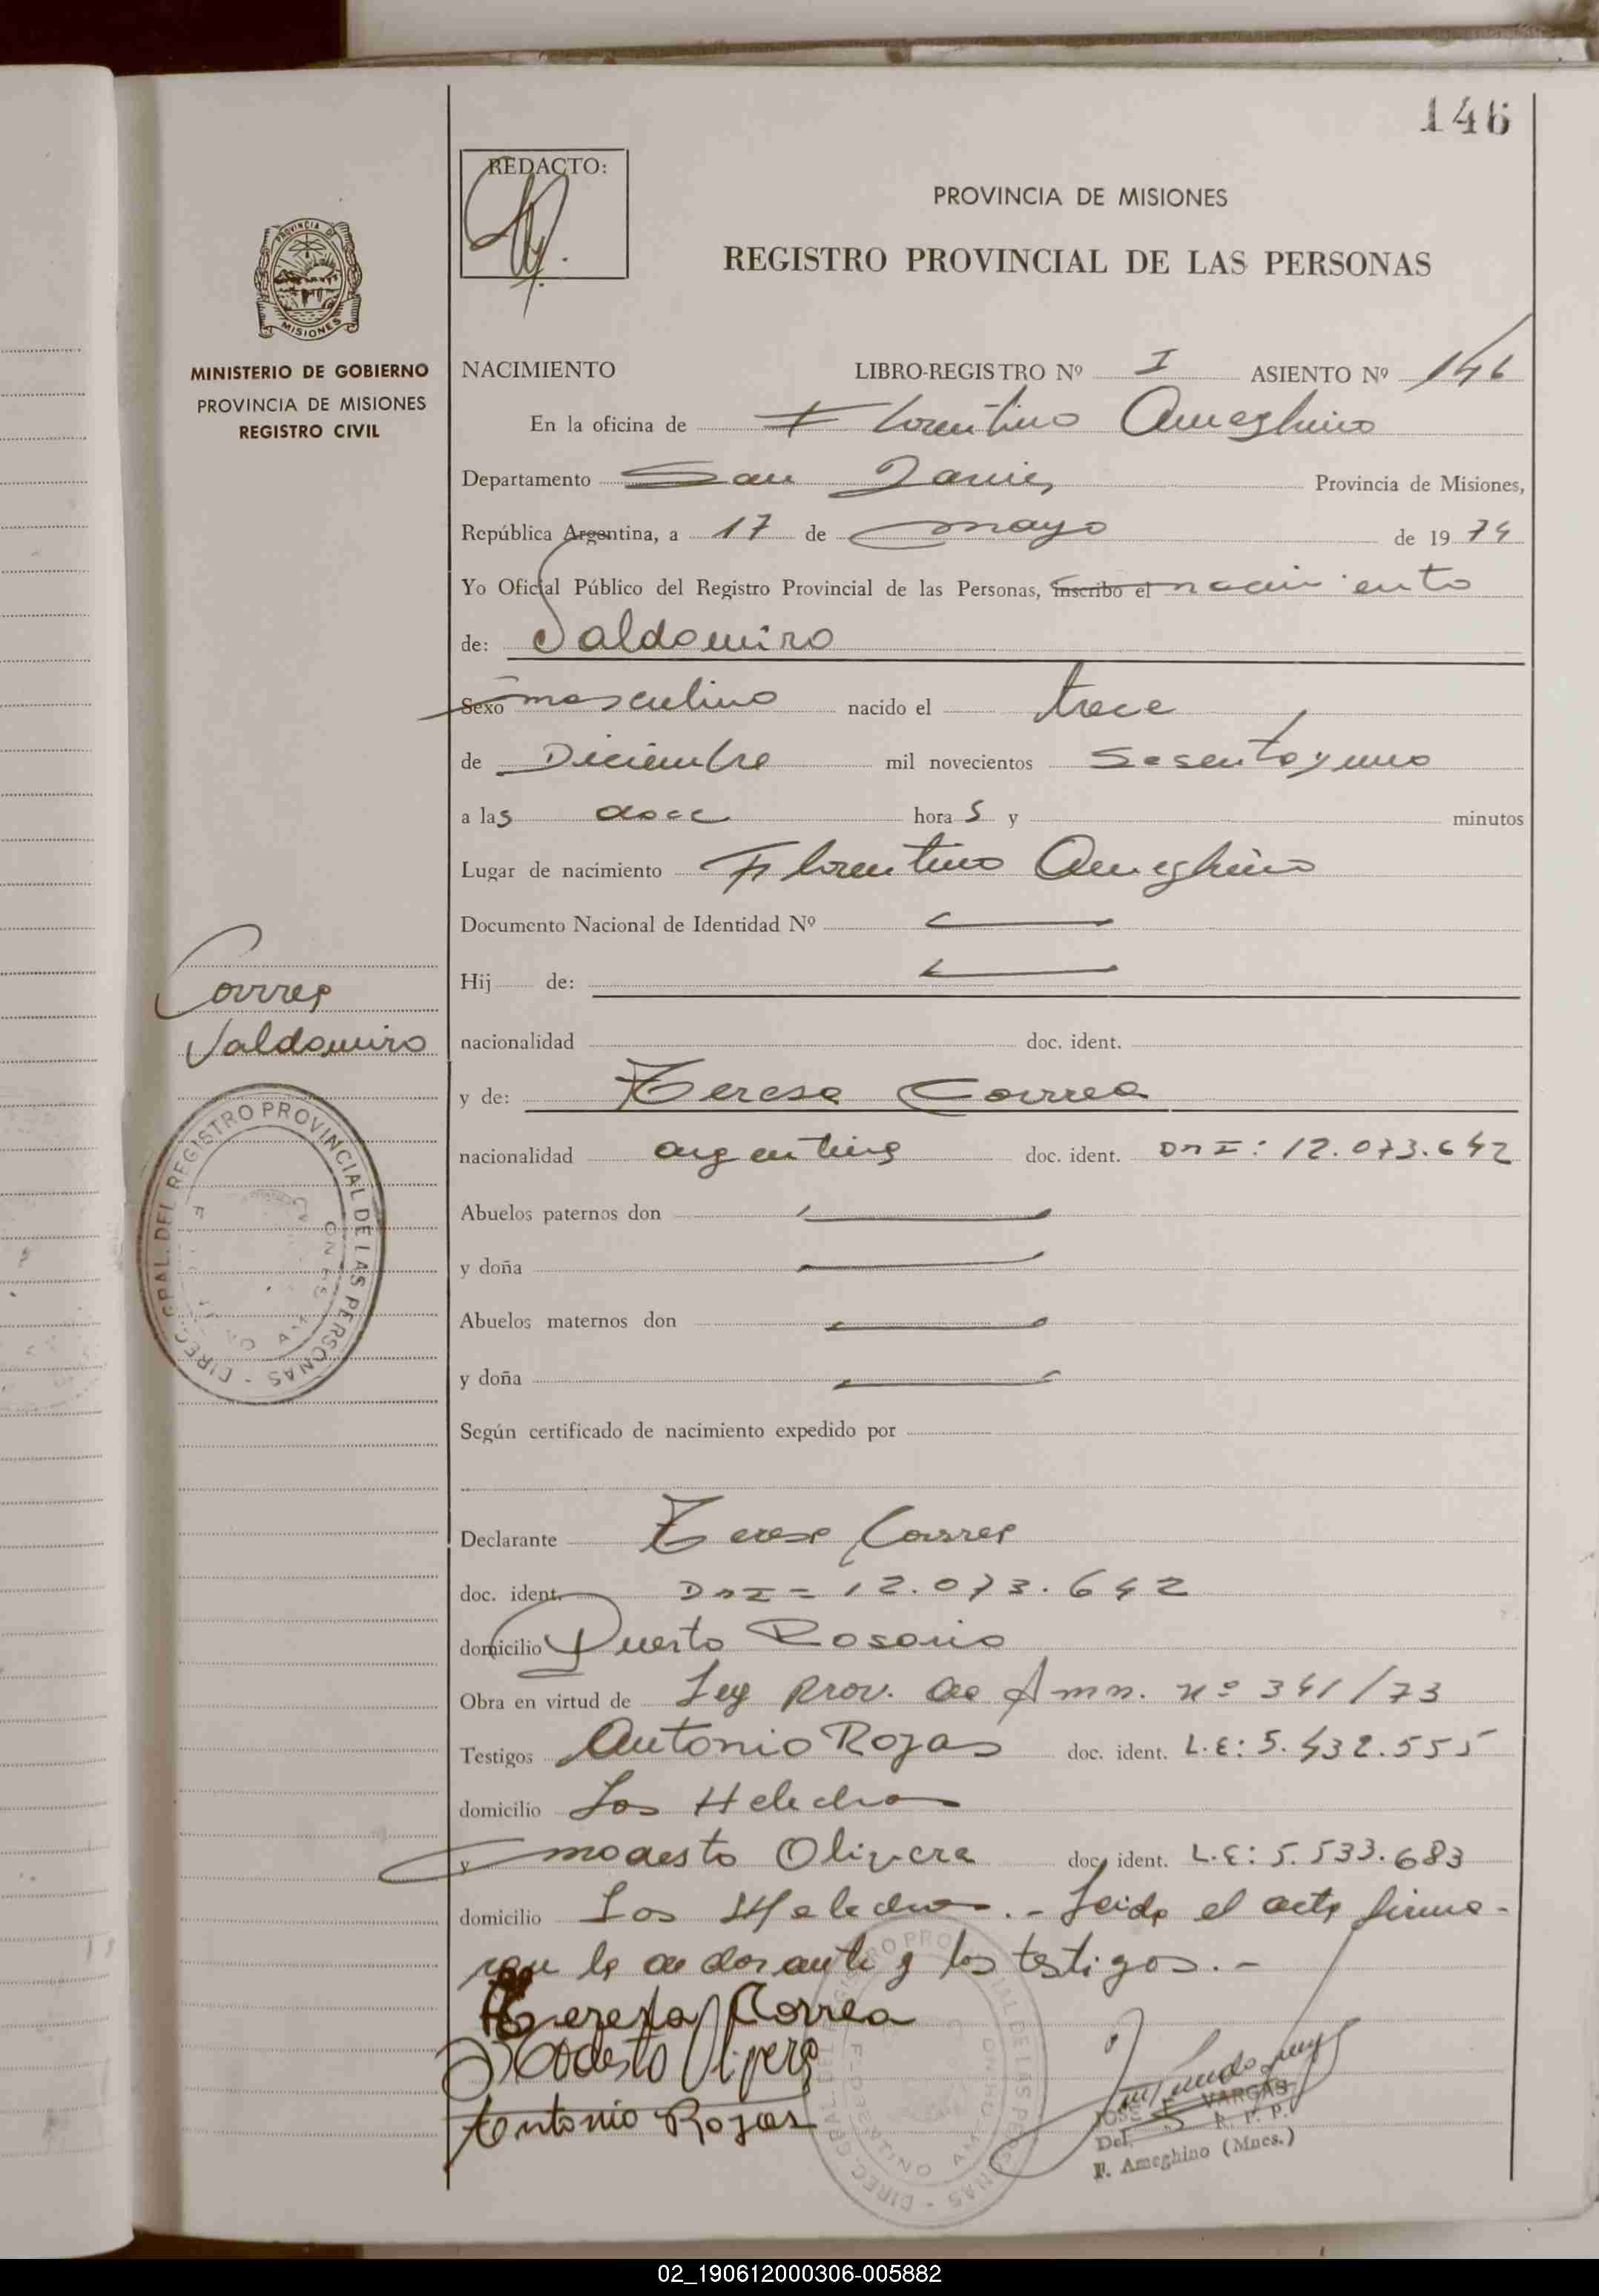 146
REDACTO:
PROVINCIA DE MISIONES
REGISTRO PROVINCIAL DE LAS PERSONAS
PROVINCIA DE
MISIONES
MINISTERIO DE GOBIERNO
PROVINCIA DE MISIONES
REGISTRO CIVIL
NACIMIENTO LIBRO-REGISTRO Nº I ASIENTO Nº 146
En la oficina de Florentino Ameghino
Departamento San Javier Provincia de Misiones,
República Argentina, a 17 de mayo de 1974
Yo Oficial Público del Registro Provincial de las Personas, inscribo el nacimiento
de: Valdomiro
Sexo masculino nacido el trece
de Diciembre mil novecientos sesentayuno
a las doce horas y minutos
Lugar de nacimiento Florentino Ameghino
Documento Nacional de Identidad Nº
Hij de:
Correa
Valdomiro
nacionalidad doc. ident.
y de: Teresa Correa
nacionalidad argentina doc. ident. DNI: 12.073.642
Abuelos paternos don
y doña
Abuelos maternos don
y doña
DIREC. GRAL. DEL REGISTRO PROVINCIAL DE LAS PERSONAS
Según certificado de nacimiento expedido por
Declarante Teresa Correa
doc. ident. DNI = 12.073.642
domicilio Puerto Rosario
Obra en virtud de Ley Prov. de Amn. nº 341/73
Testigos Antonio Rojas doc. ident. L.E: 5.432.555
domicilio Los Helechos
y modesto Olivera doc. ident. L.E: 5.533.683
domicilio Los Helechos.- Leida el acta firma-
ron la declarante y los testigos.-
Teresa Correa
Modesto Olivera
Antonio Rojas
JOSE F. VARGAS
Del. R. P. P.
F. Ameghino (Mnes.)
02_190612000306-005882